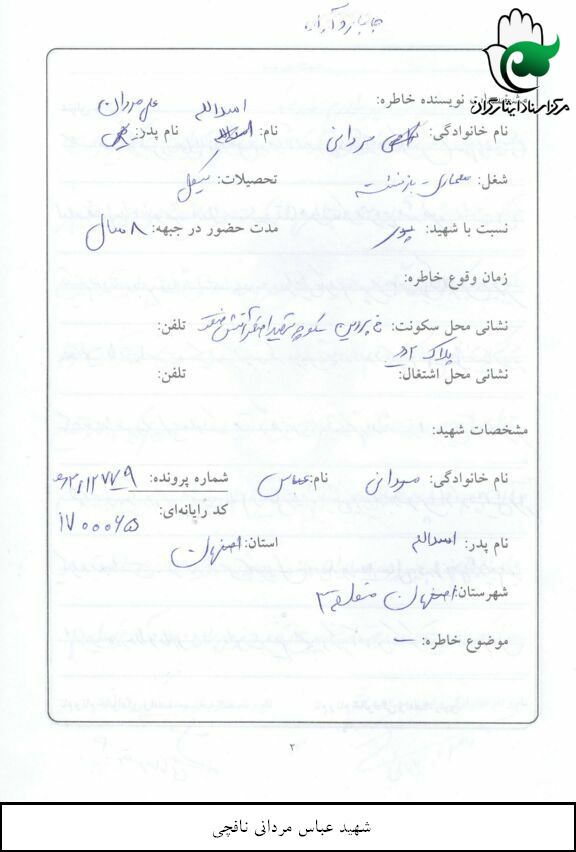 مرکز اسناد ایثارگران
مشخصات نویسنده خاطره:
اسدالله علی مردان
نام خانوادگی: مردانی نام: نام پدر:
شغل: معماری - بازنشسته تحصیلات: سیکل
نسبت با شهید: پدر مدت حضور در جبهه: ۸ سال
زمان وقوع خاطره:
نشانی محل سکونت: خ پروین کوچه شهید اصغر تلفن:
پلاک
نشانی محل اشتغال: تلفن:
مشخصات شهید:
نام خانوادگی: مردانی نام: عباس شماره پرونده:
کد رایانه‌ای:
نام پدر: اسداله استان: اصفهان
شهرستان: اصفهان منطقه ۳
موضوع خاطره: –
۲
شهید عباس مردانی نافچی